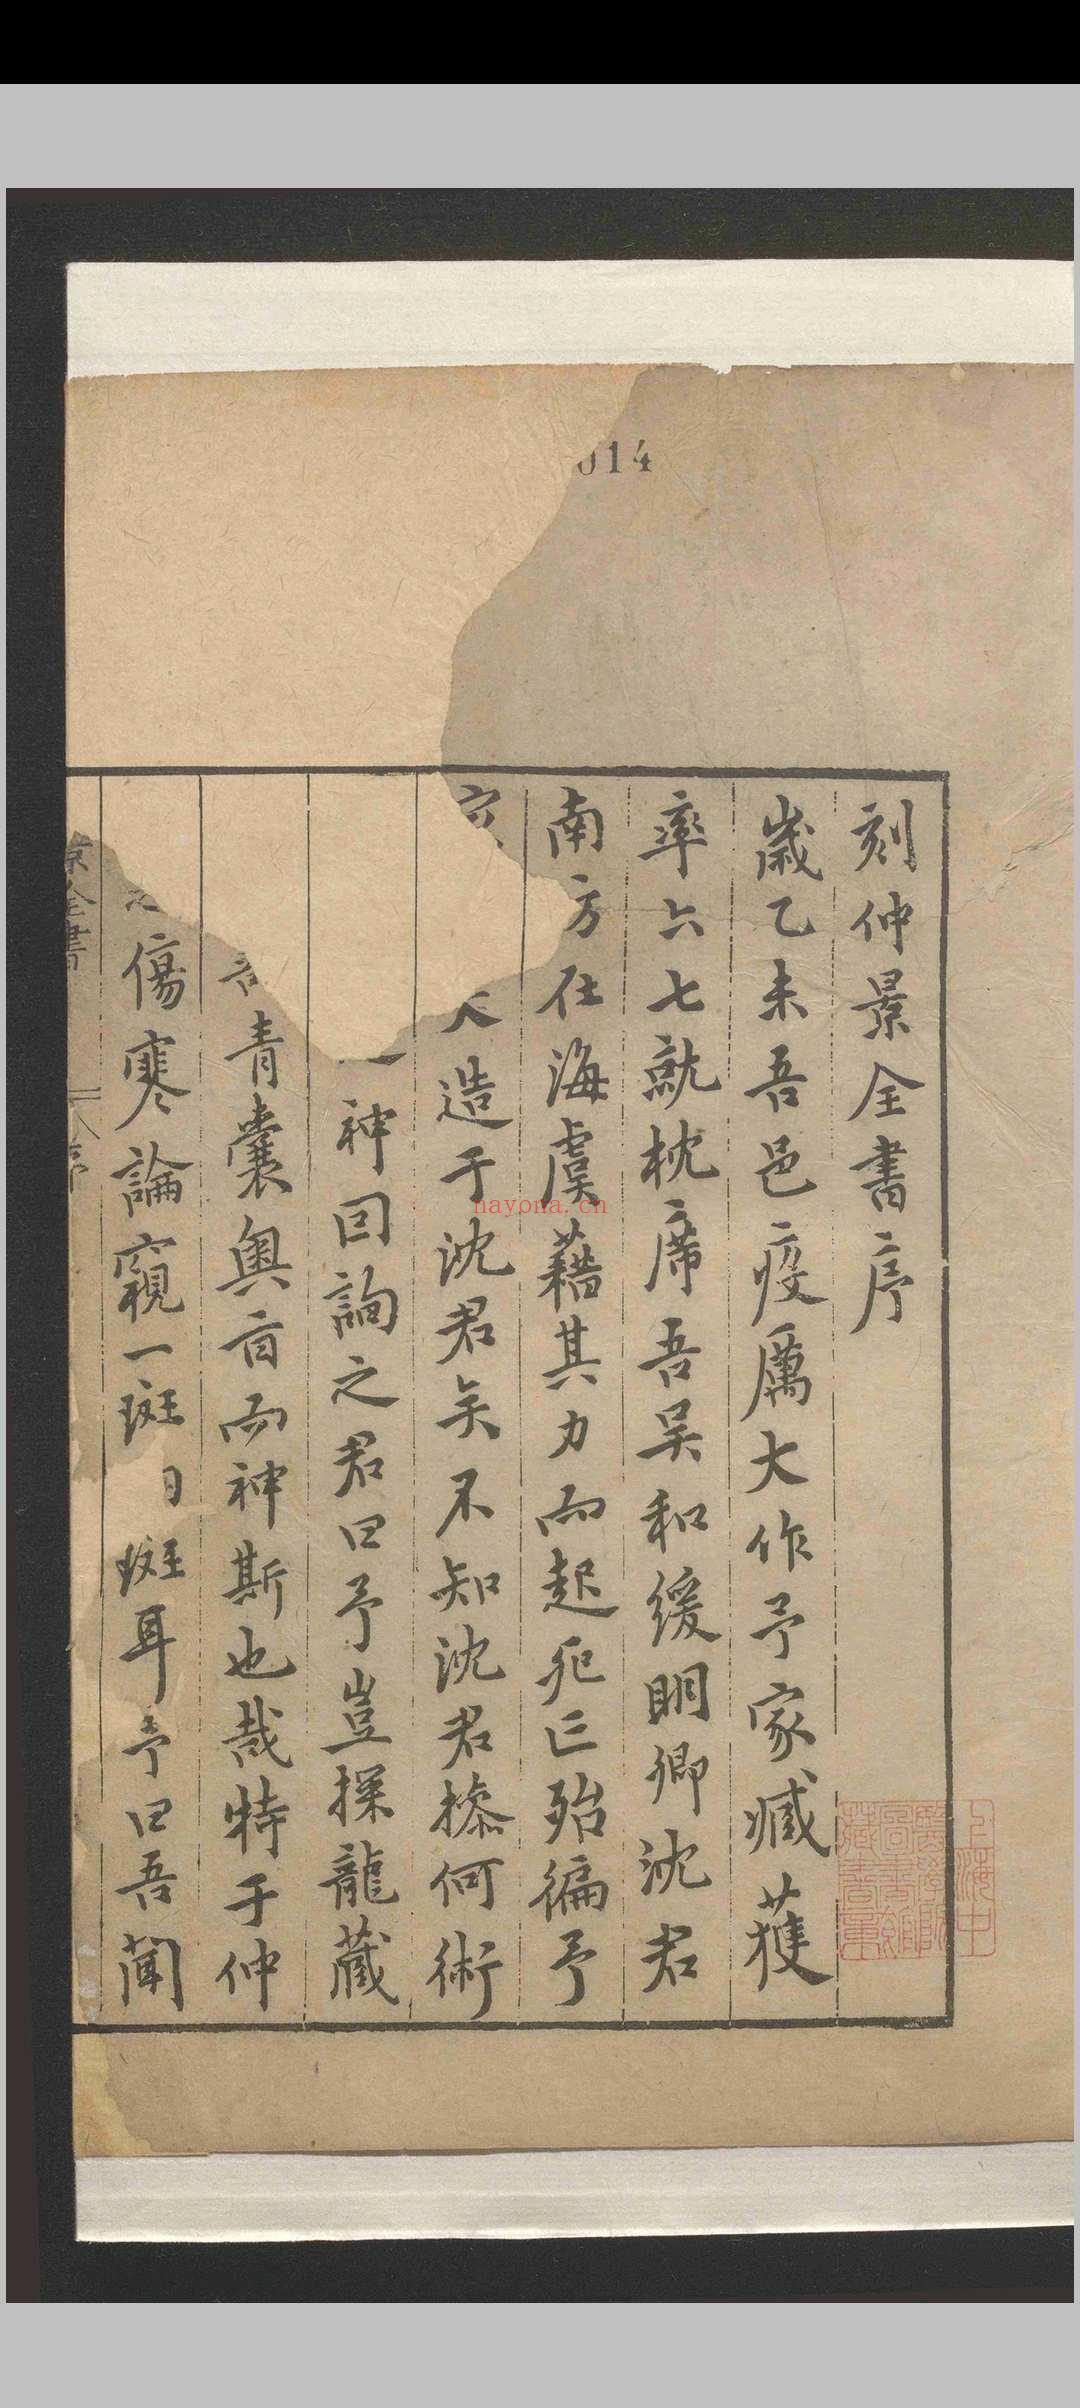 014
刻仲景全書序
歲乙未吾邑疫厲大作予家臧獲
率六七就枕席吾吴和緩明卿沈君
南方仕海虞藉其力而起死亡殆徧予
大造于沈君矣不知沈君操何術
神因詢之君曰予豈探龍藏
青囊奥旨而神斯也哉特于仲
傷寒論窺一斑斑耳予曰吾聞
景全書
序
nayona.cn